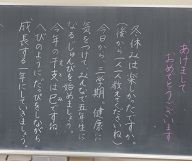 あけまして
おめでとうございます
冬休みは楽しかったですか。
(後から一人一人教えてくださいね)
今日から三学期、健康に
気をつけて、みんなで五年生に
なるじゅんびを始めましょう。
今年の干支は巳ですね。
へびのようにだっぴをしながら
成長する一年にしていきましょう。